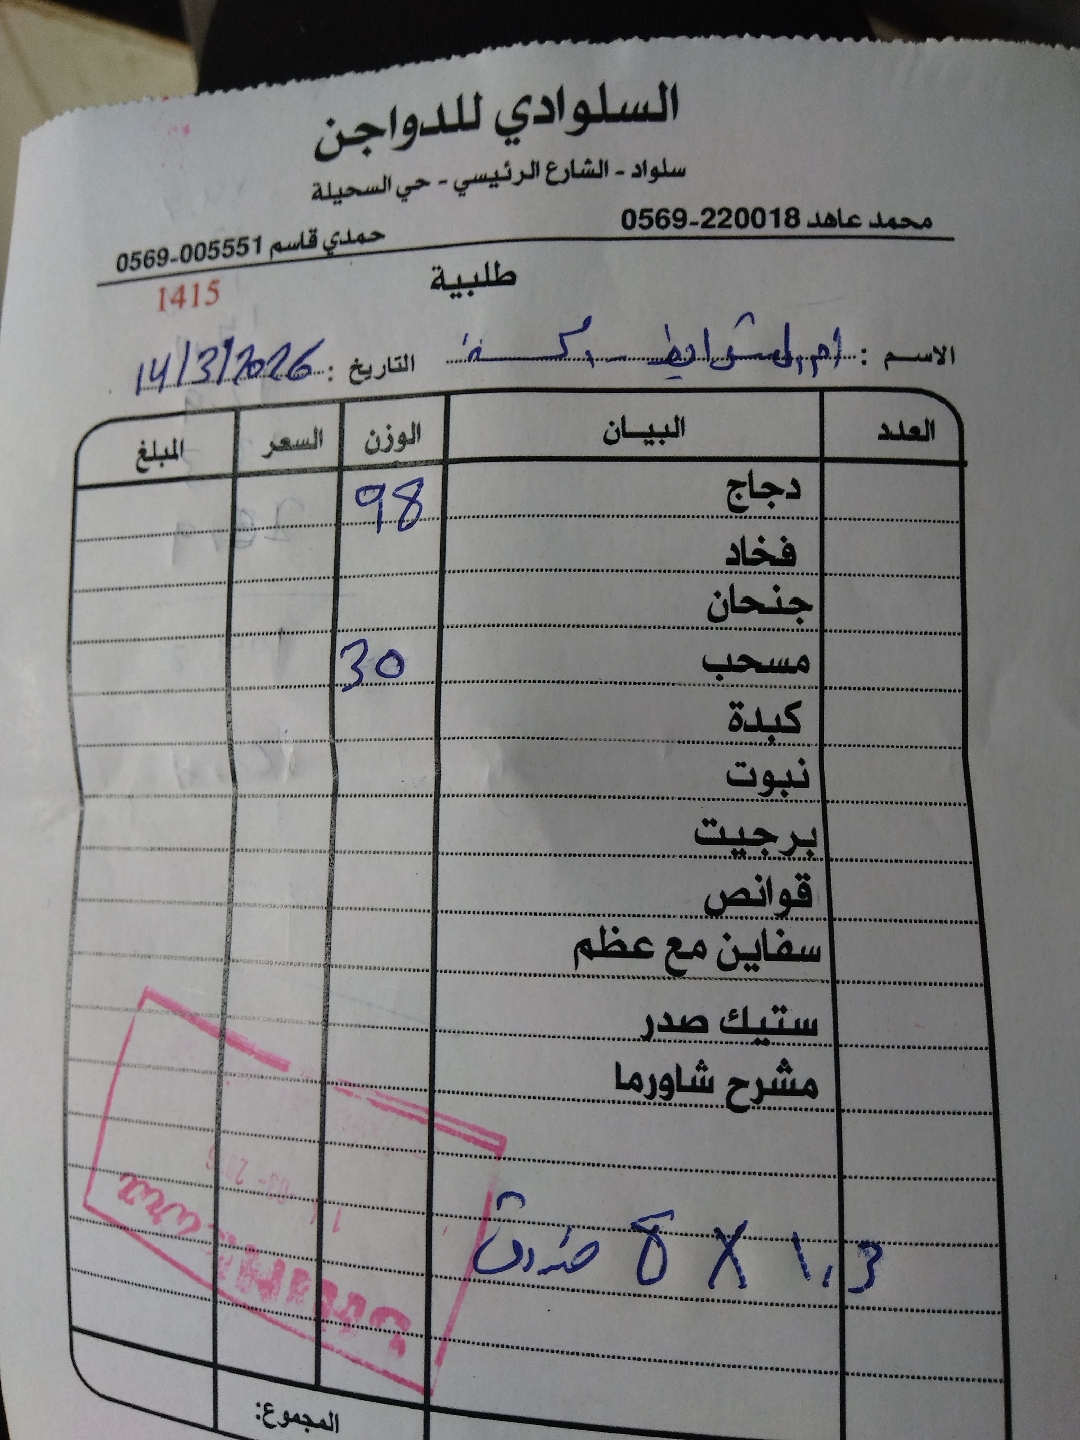 السلوادي للدواجن
سلواد - الشارع الرئيسي - حي السحيلة
محمد عاهد 0569-220018 حمدي قاسم 0569-005551
1415
طلبية
الاسم : ام الشرايط التاريخ : 14/3/2026
العدد البيان الوزن السعر المبلغ
دجاج 98
فخاد
جنحان
مسحب 30
كبدة
نبوت
برجيت
قوانص
سفاين مع عظم
ستيك صدر
مشرح شاورما
صندوق 8 X 1,3
المجموع: